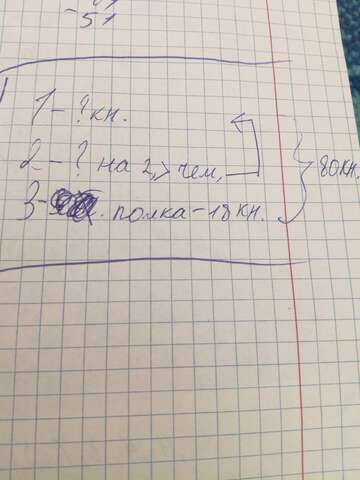 - 51
1 - ? кн.
2 - ? на 2, > чем,
3 - полка - 18 кн.
80 кн.